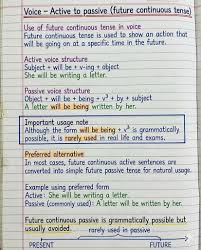 Voice – Active to passive (future continuous tense)
Use of future continuous tense in voice
Future continuous tense is used to show an action that
will be going on at a specific time in the future.
Active voice structure
Subject + will be + v-ing + object
She will be writing a letter.
Passive voice structure
Object + will be + being + v³ + by + subject
A letter will be being written by her.
Important usage note
Although the form will be being + v³ is grammatically
possible, it is rarely used in real life and exams.
Preferred alternative
In most cases, future continuous active sentences are
converted into simple future passive tense for natural usage.
Example using preferred form
Active: She will be writing a letter.
Passive (commonly used): A letter will be written by her.
Future continuous passive is grammatically possible but
usually avoided.
rarely used in passive
PRESENT FUTURE